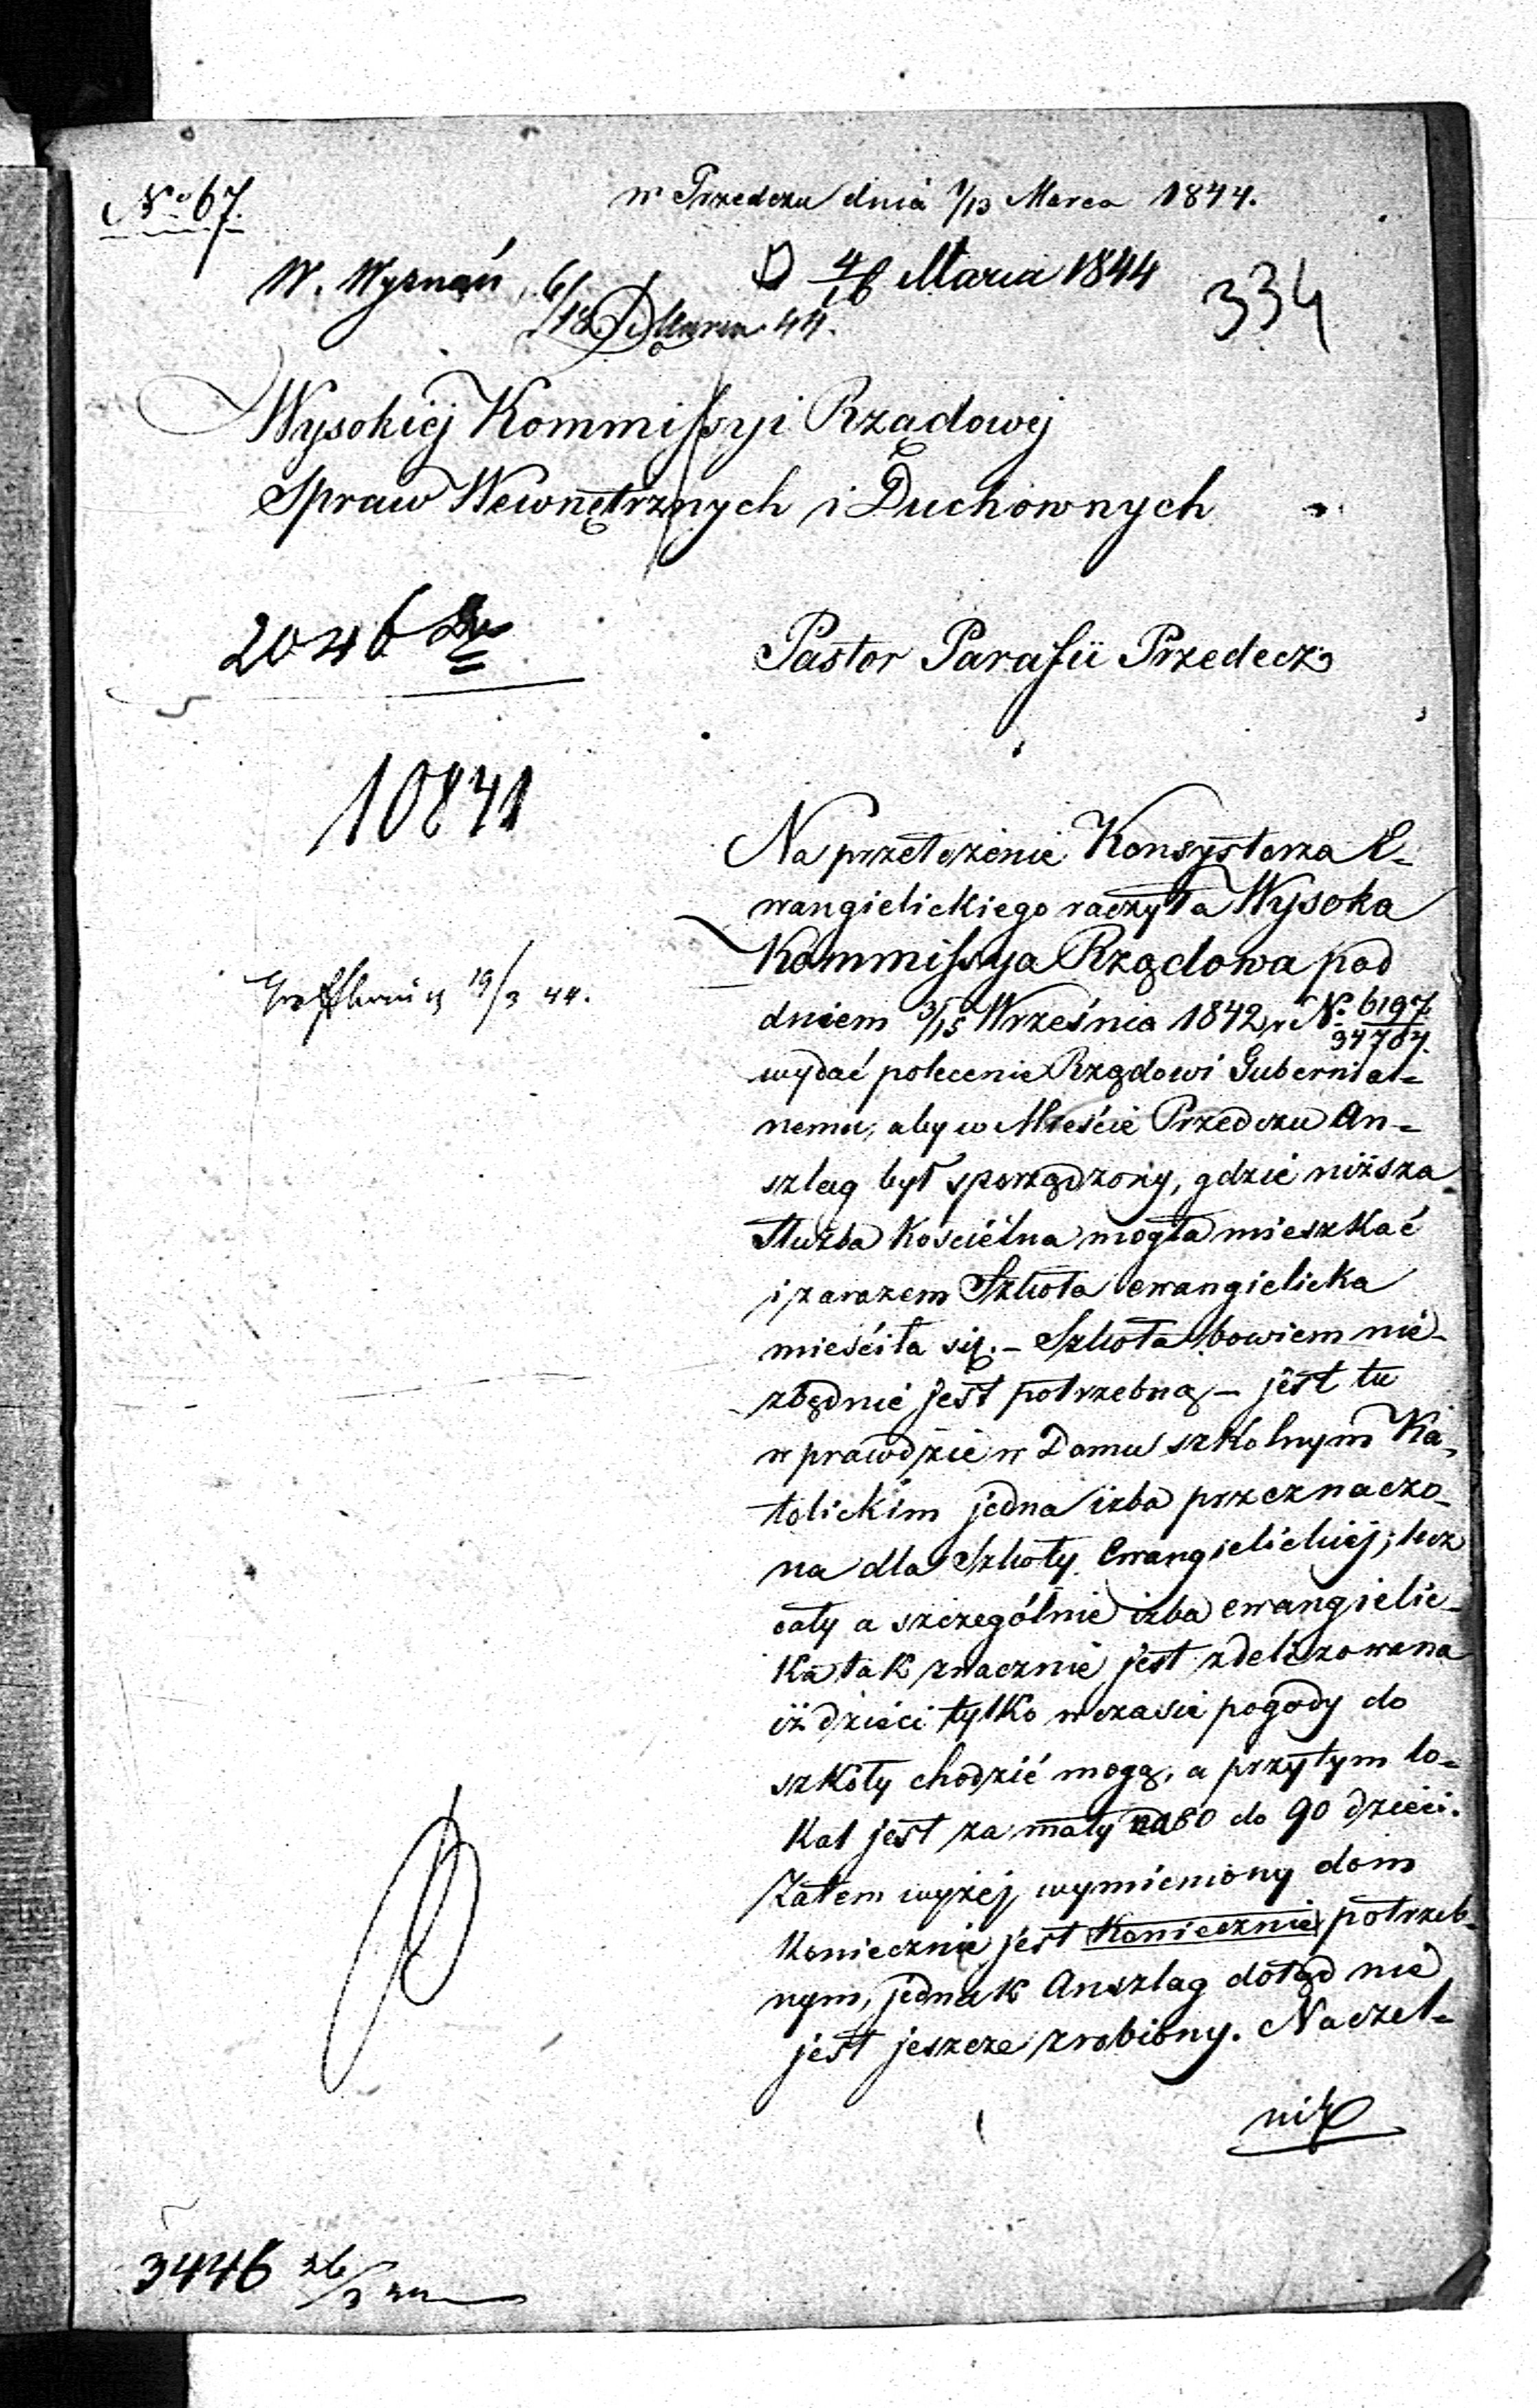 No 67.
w Przedczu dnia 1/13 Marca 1844.
W. Wyznań 6/18 Marca 44.
D 4/16 Marca 1844
334
Wysokiéj Kommissyi Rządowéj
Spraw Wewnętrznych i Duchownych
2046
Pastor Parafii Przedecz
10841
Na przełożenie Konsystorza E-
wangielickiego raczyła Wysoka
Kommissya Rządowa pod
19/3 44.
dniem 3/15 Września 1842 r. No. 6197/34704.
wydać polecenie Rządowi Gubernial-
nemu, aby w Mieście Przedczu An-
szlag był sporządzony, gdzie niższa
służba Kościelna mogła mieszkać
i zarazem Szkoła ewangielicka
mieściła się. – Szkoła bowiem nie-
zbędnie jest potrzebną – jest tu
wprawdzie w Domu szkolnym Ka-
tolickim jedna izba przeznaczo-
na dla Szkoły Ewangielickiéj; lecz
cały a szczególnie izba ewangielic-
ka tak znacznie jest zdelizowana
iż dzieci tylko w czasie pogody do
szkoły chodzić mogą, a przytym lo-
kal jest za mały na 80 do 90 dzieci.
Zatem wyżéj wymieniony dom
koniecznie jest koniecznie potrzeb-
nym, jednak Anszlag dotąd nie
jest jeszcze zrobiony. Naczel-
nik
3446 26/3 44